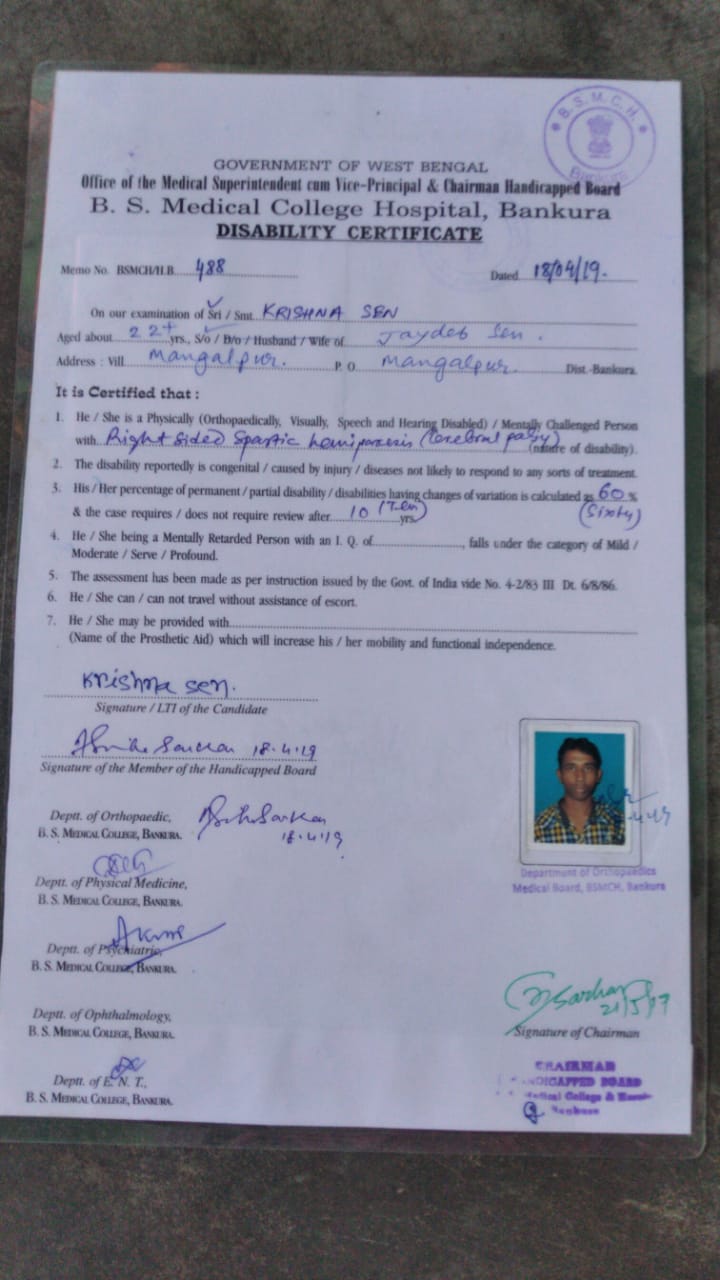 B. S. M. C. H.
Bankura
GOVERNMENT OF WEST BENGAL
Office of the Medical Superintendent cum Vice-Principal & Chairman Handicapped Board
B. S. Medical College Hospital, Bankura
DISABILITY CERTIFICATE
Memo No. BSMCH/H.B. 488 Dated 18/04/19.
On our examination of Sri / Smt. KRISHNA SEN
Aged about 22+ yrs., S/o / D/o / Husband / Wife of Jaydeb Sen.
Address : Vill Mangalpur. P. O. Mangalpur. Dist.-Bankura.
It is Certified that :
1. He / She is a Physically (Orthopaedically, Visually, Speech and Hearing Disabled) / Mentally Challenged Person
with Right sided Spastic hemiparesis (Cerebral palsy) (nature of disability).
2. The disability reportedly is congenital / caused by injury / diseases not likely to respond to any sorts of treatment.
3. His / Her percentage of permanent / partial disability / disabilities having changes of variation is calculated as 60 %
(Sixty)
& the case requires / does not require review after 10 (Ten) yrs.
4. He / She being a Mentally Retarded Person with an I. Q. of, falls under the category of Mild /
Moderate / Serve / Profound.
5. The assessment has been made as per instruction issued by the Govt. of India vide No. 4-2/83 III Dt. 6/8/86.
6. He / She can / can not travel without assistance of escort.
7. He / She may be provided with
(Name of the Prosthetic Aid) which will increase his / her mobility and functional independence.
Krishna Sen.
Signature / LTI of the Candidate
Sarkar 18.4.19
Signature of the Member of the Handicapped Board
Deptt. of Orthopaedic,
B. S. MEDICAL COLLEGE, BANKURA.
Sarkar
18.4.19
Deptt. of Physical Medicine,
B. S. MEDICAL COLLEGE, BANKURA.
Deptt. of Psychiatric,
B. S. MEDICAL COLLEGE, BANKURA.
Deptt. of Ophthalmology,
B. S. MEDICAL COLLEGE, BANKURA.
Deptt. of E. N. T.,
B. S. MEDICAL COLLEGE, BANKURA.
Department of Orthopaedics
Medical Board, BSMCH, Bankura
Sarkar
Signature of Chairman
CHAIRMAN
HANDICAPPED BOARD
Medical College &
Bankura